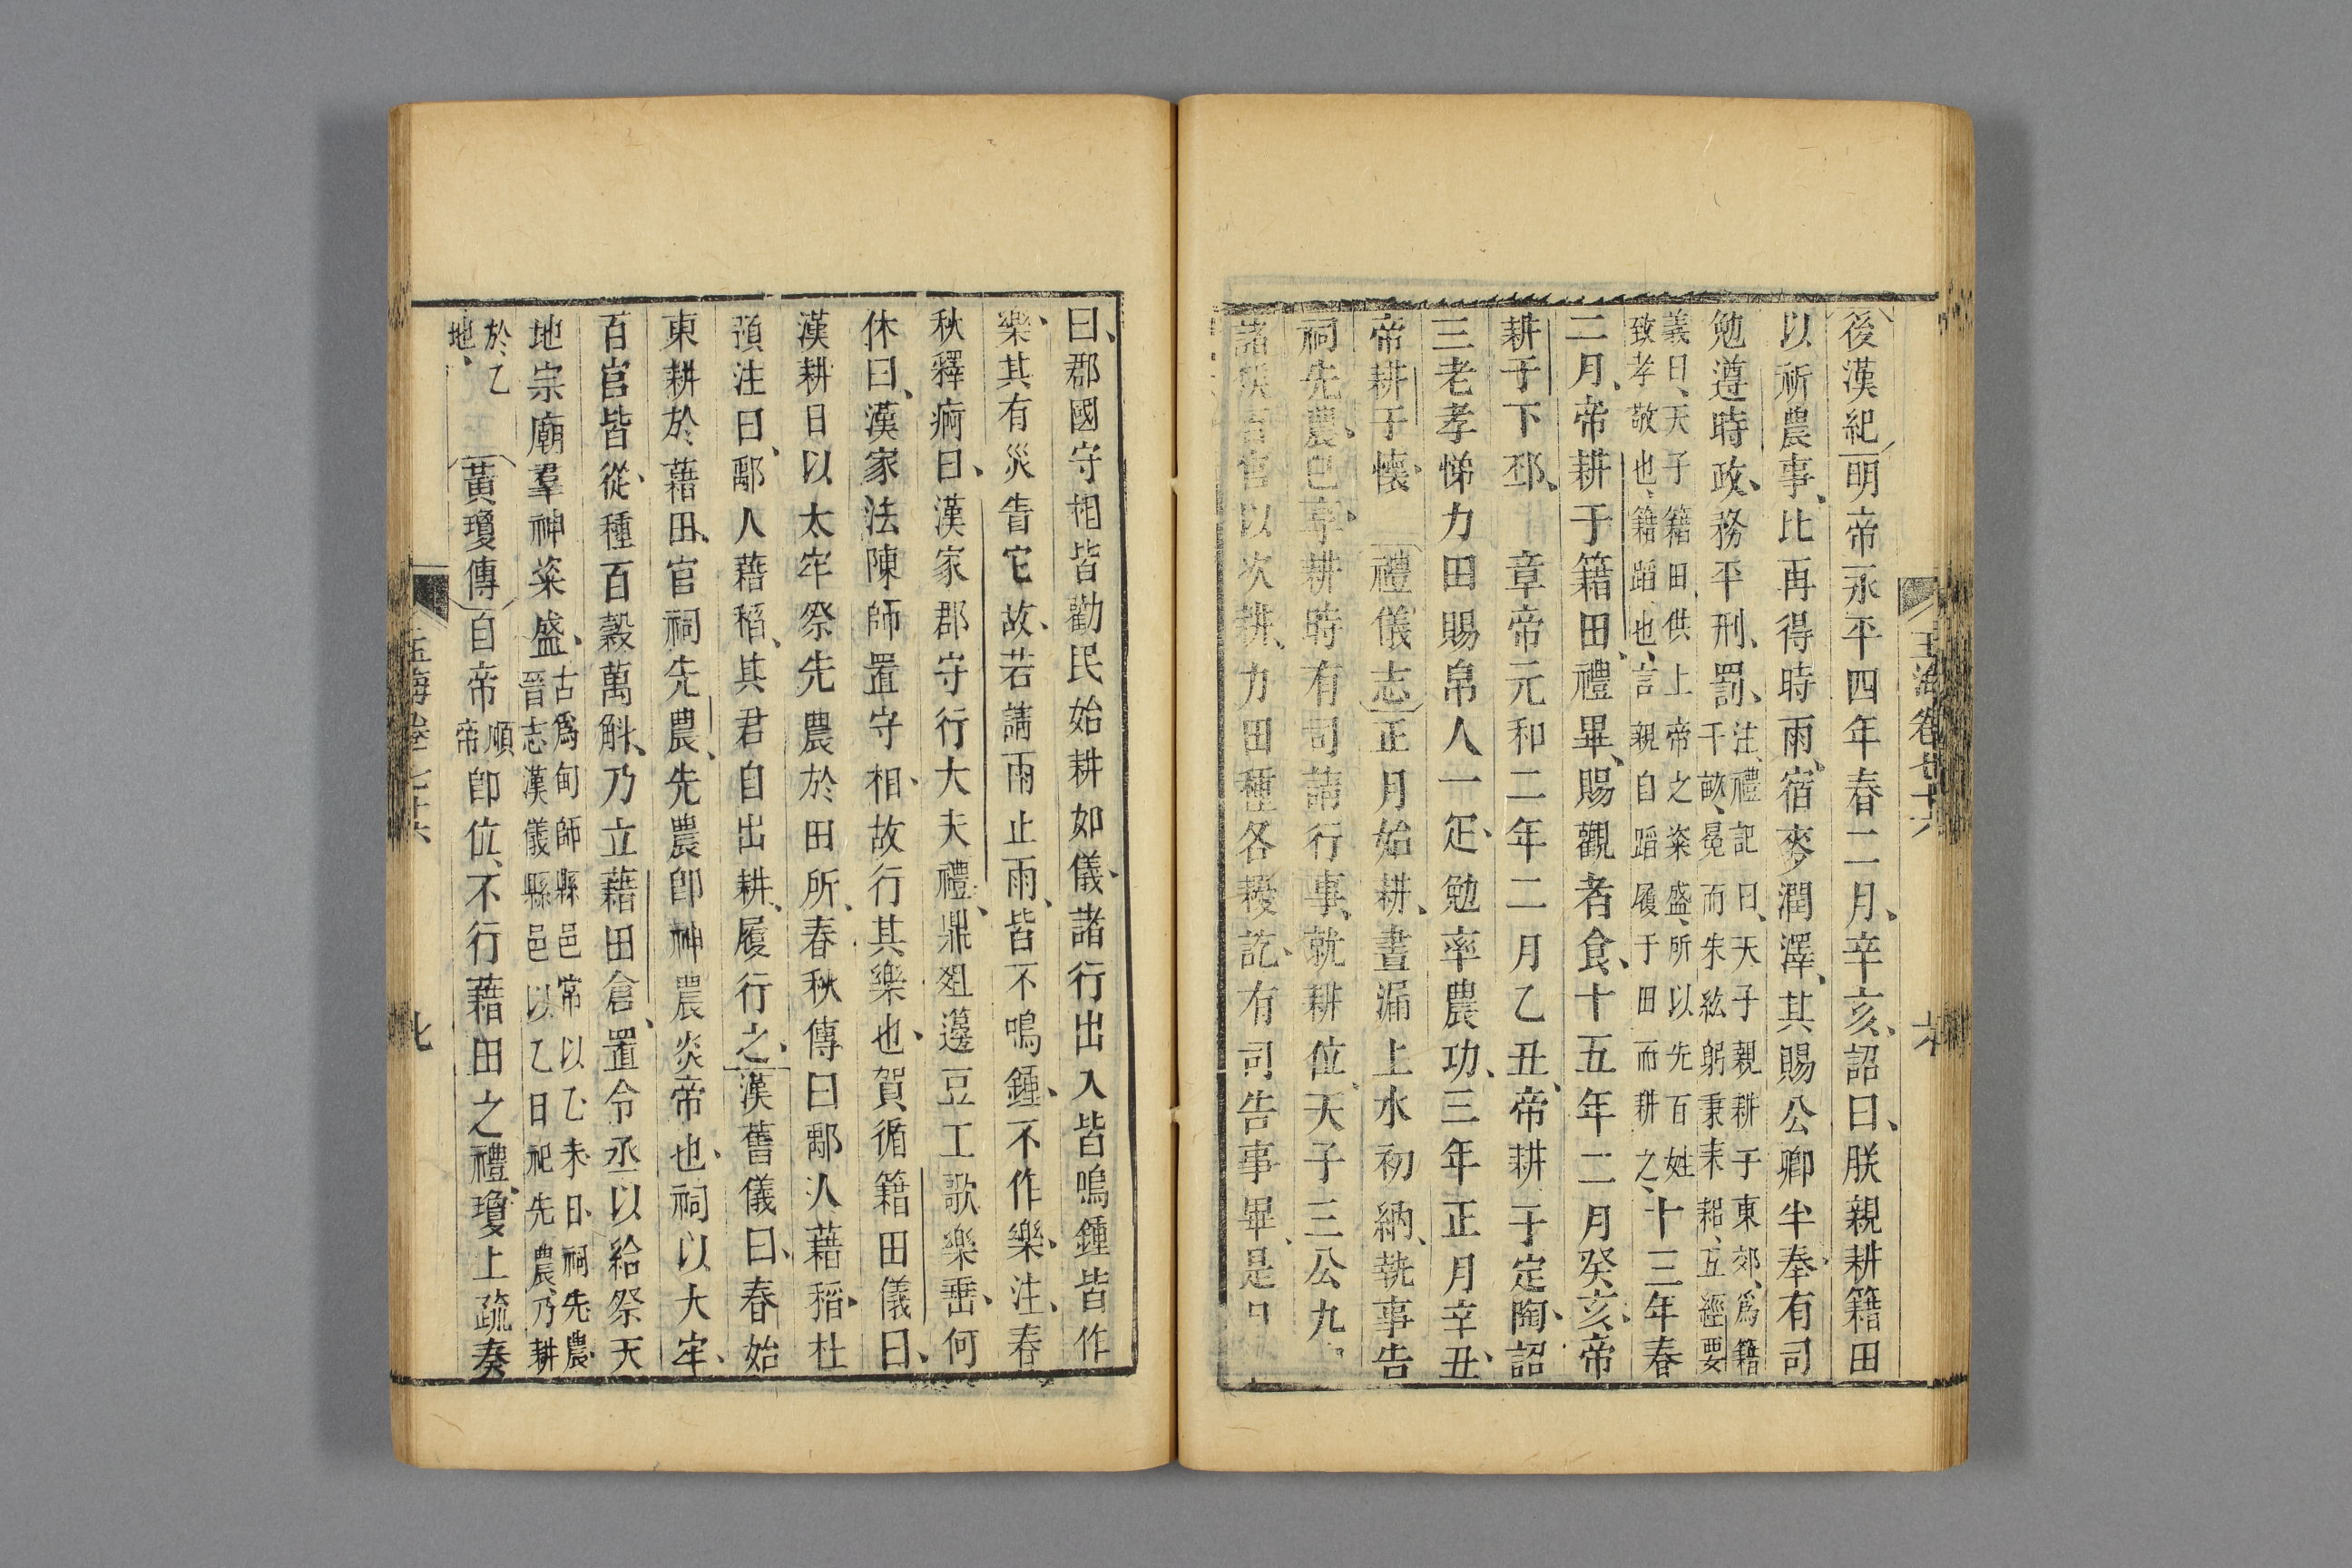 後漢紀明帝永平四年春二月辛亥詔曰朕親耕籍田
以祈農事比再得時雨宿麥潤澤其賜公卿半奉有司
勉遵時政務平刑罰注禮記曰天子親耕于東郊爲籍
千畝冕而朱紘躬秉耒耜五經要
義曰天子籍田供上帝之粢盛所以先百姓
致孝敬也籍蹈也言親自蹈履于田而耕之十三年春
二月帝耕于籍田禮畢賜觀者食十五年二月癸亥帝
耕于下邳 章帝元和二年二月乙丑帝耕于定陶詔
三老孝悌力田賜帛人一疋勉率農功三年正月辛丑
帝耕于懷 禮儀志正月始耕晝漏上水初納執事告
祠先農已享耕時有司請行事就耕位天子三公九
諸 百官以次耕力田種各耰訖有司告事畢是
玉海卷七十六 六
曰郡國守相皆勸民始耕如儀諸行出入皆鳴鍾皆作
樂其有災眚它故若請雨止雨皆不鳴鍾不作樂注春
秋釋痾曰漢家郡守行大夫禮鼎俎籩豆工歌樂 何
休曰漢家法陳師置守相故行其樂也賀循籍田儀曰
漢耕日以太牢祭先農於田所春秋傳曰鄅人藉稻杜
預注曰鄅人藉稻其君自出耕履行之漢舊儀曰春始
東耕於藉田官祠先農先農卽神農炎帝也祠以大牢
百官皆從種百穀萬斛乃立藉田倉置令丞以給祭天
地宗廟羣神粢盛古爲甸師縣邑常以乙未日祠先農
晉志漢儀縣邑以乙日祀先農乃耕
於乙
地 黃瓊傳自帝順
帝卽位不行藉田之禮瓊上疏奏
玉海卷七十六 七